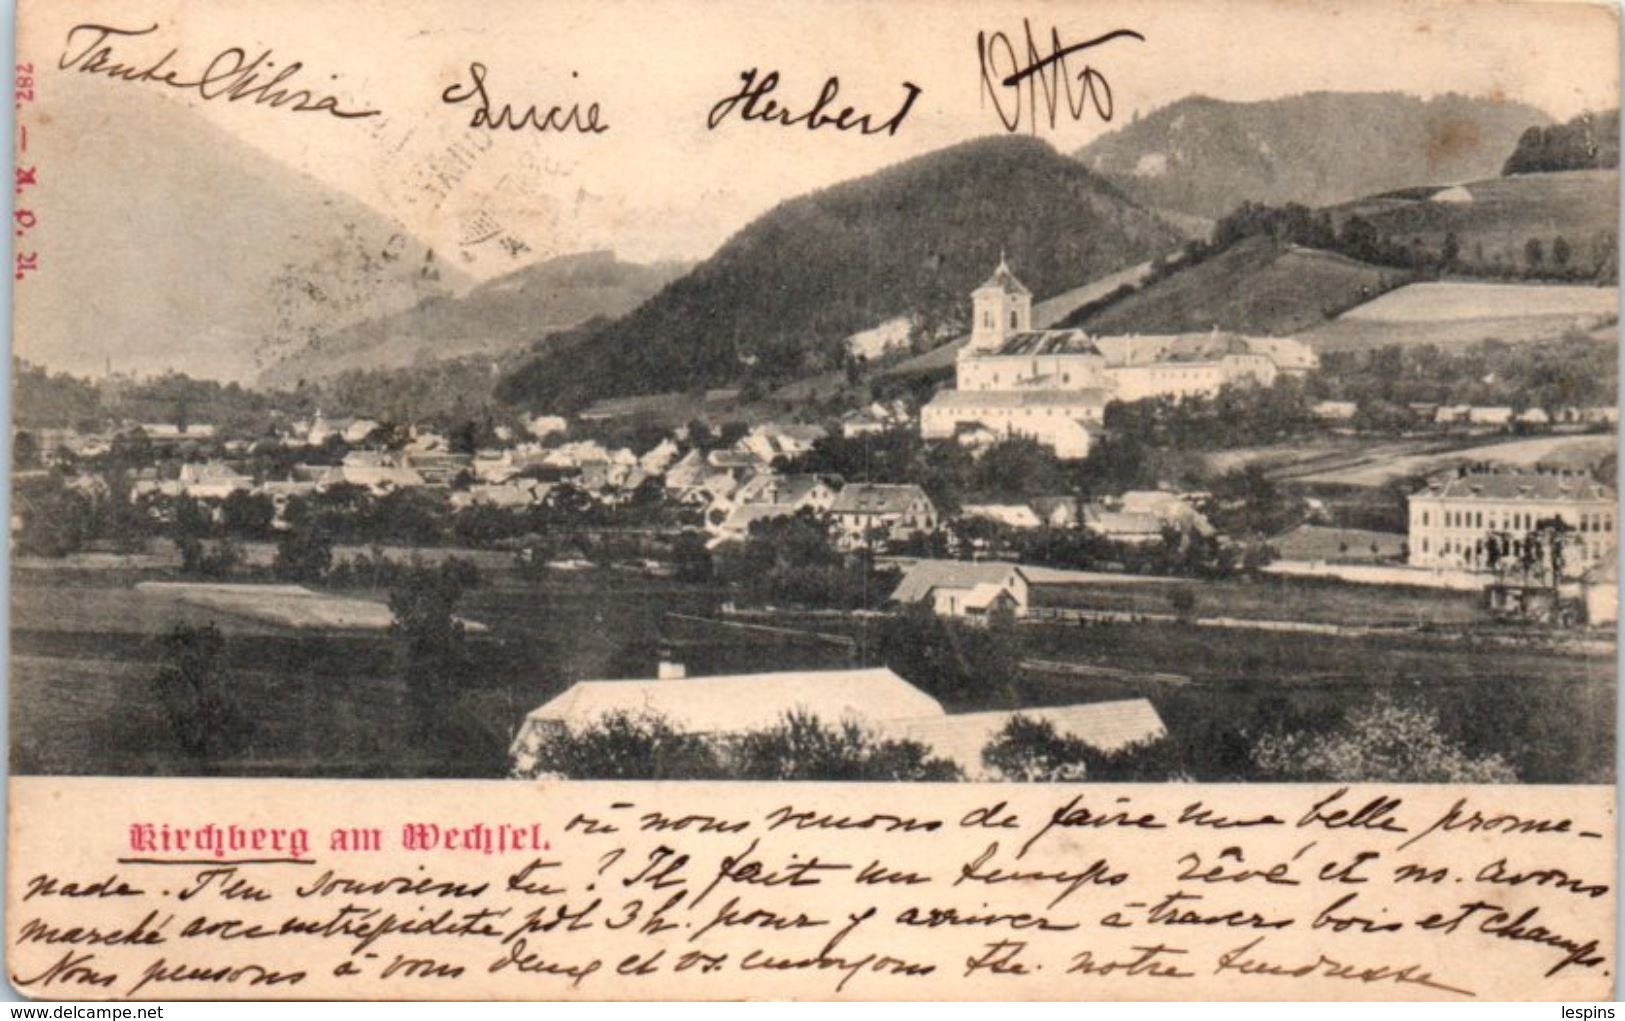 Tante Silvia Lucie Herbert Otto
787. — A. O. N.
Kirchberg am Wechsel. où nous venons de faire une belle prome-
nade. T'en souviens tu ? Il fait un temps rêvé et ns. avons
marché avec intrépidité pdt 3h. pour y arriver à travers bois et champs.
Nous pensons à vous deux et vs. envoyons tte. notre tendresse
delcampe.net
lespins